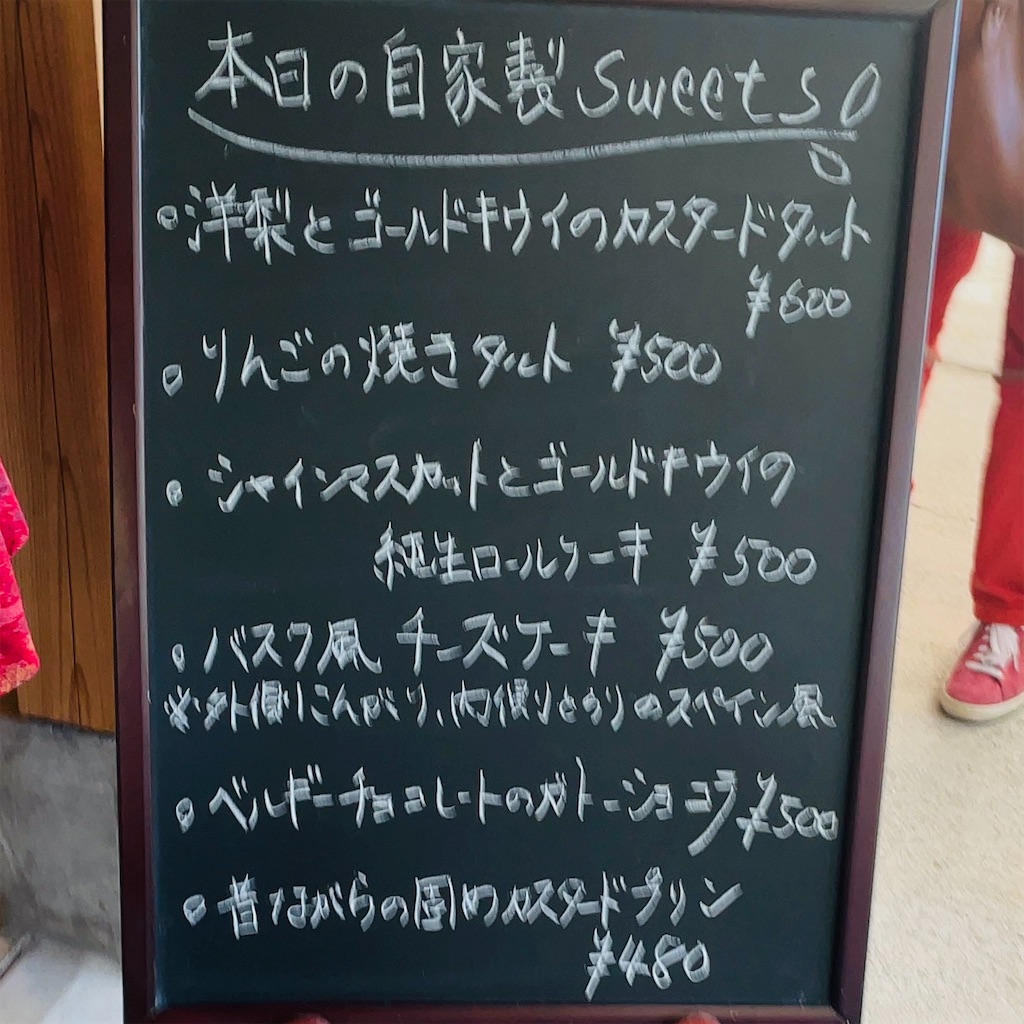 本日の自家製Sweets
・洋梨とゴールドキウイのカスタードタルト
¥600
・りんごの焼きタルト ¥500
・シャインマスカットとゴールドキウイの
純生ロールケーキ ¥500
・バスク風 チーズケーキ ¥500
※外側こんがり、内側とろりのスペイン風
・ベルギーチョコレートのガトーショコラ ¥500
・昔ながらの固めカスタードプリン
¥480